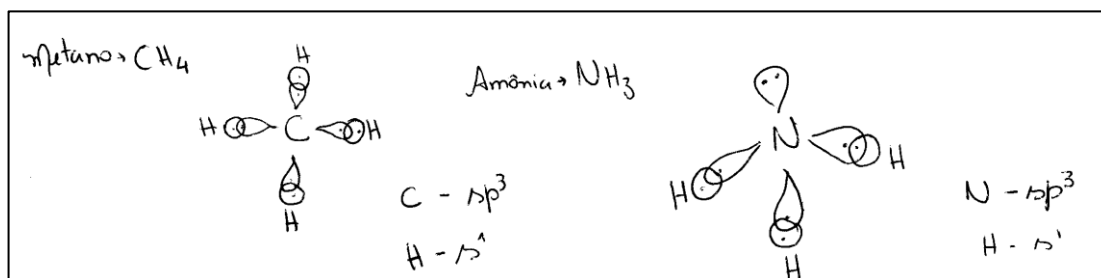 Metano → CH₄
H
H C H
H
C - sp³
H - s¹
Amônia → NH₃
N
H H
H
N - sp³
H - s¹